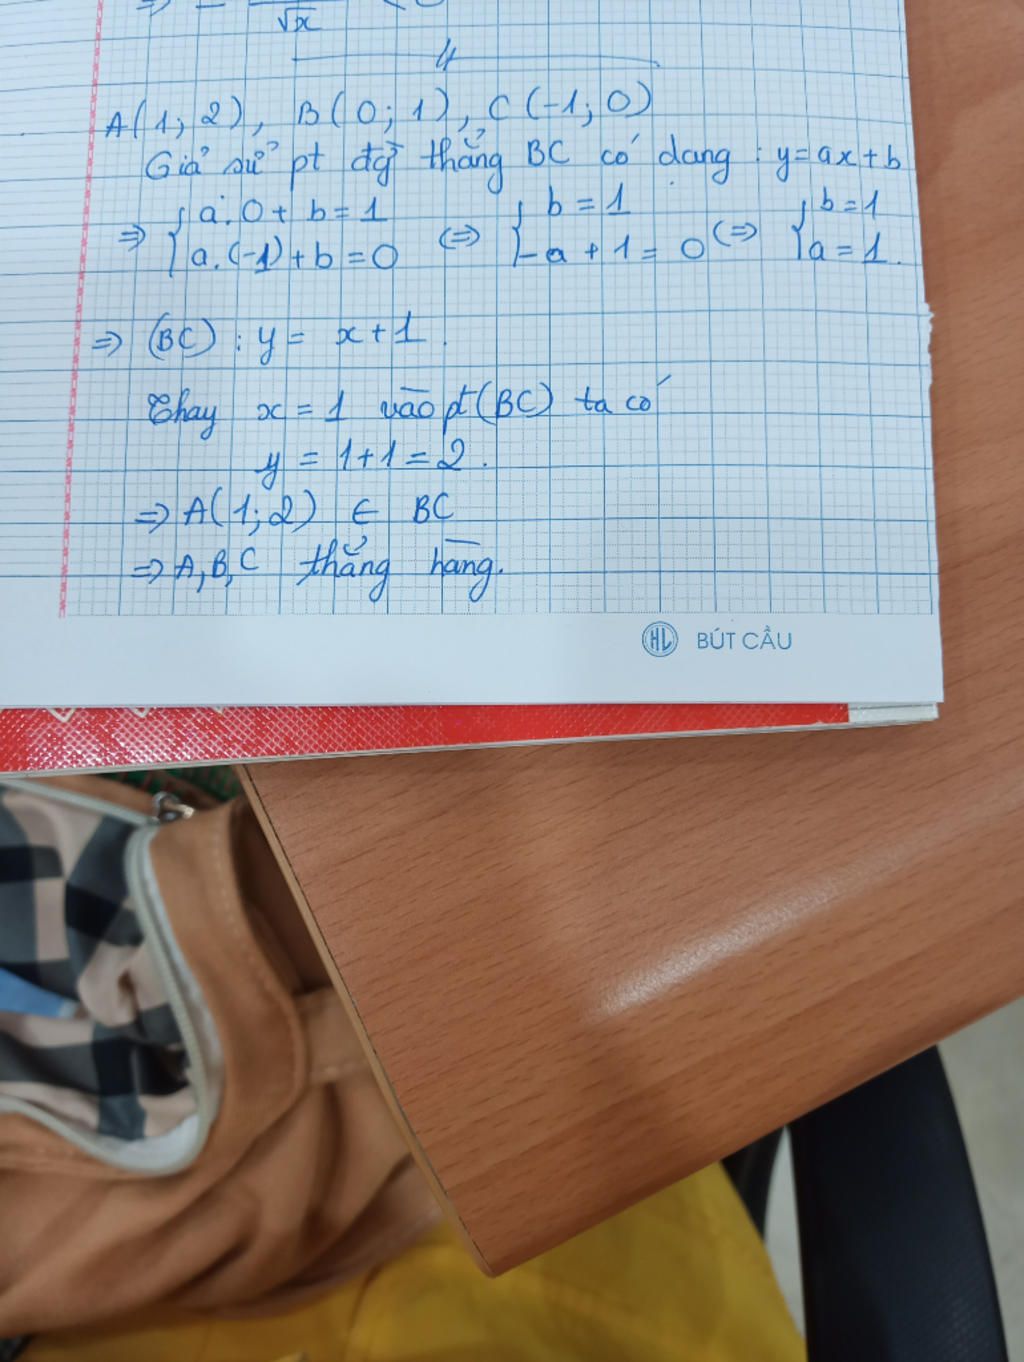 √x
A(1; 2), B(0; 1), C(-1; 0)
Giả sử pt đg thẳng BC có dạng : y = ax + b
=> { a.0 + b = 1 <=> { b = 1 <=> { b = 1
a.(-1) + b = 0 -a + 1 = 0 a = 1.
=> (BC) : y = x + 1.
Thay x = 1 vào pt (BC) ta có
y = 1 + 1 = 2.
=> A(1; 2) ∈ BC
=> A, B, C thẳng hàng.
HL BÚT CẦU